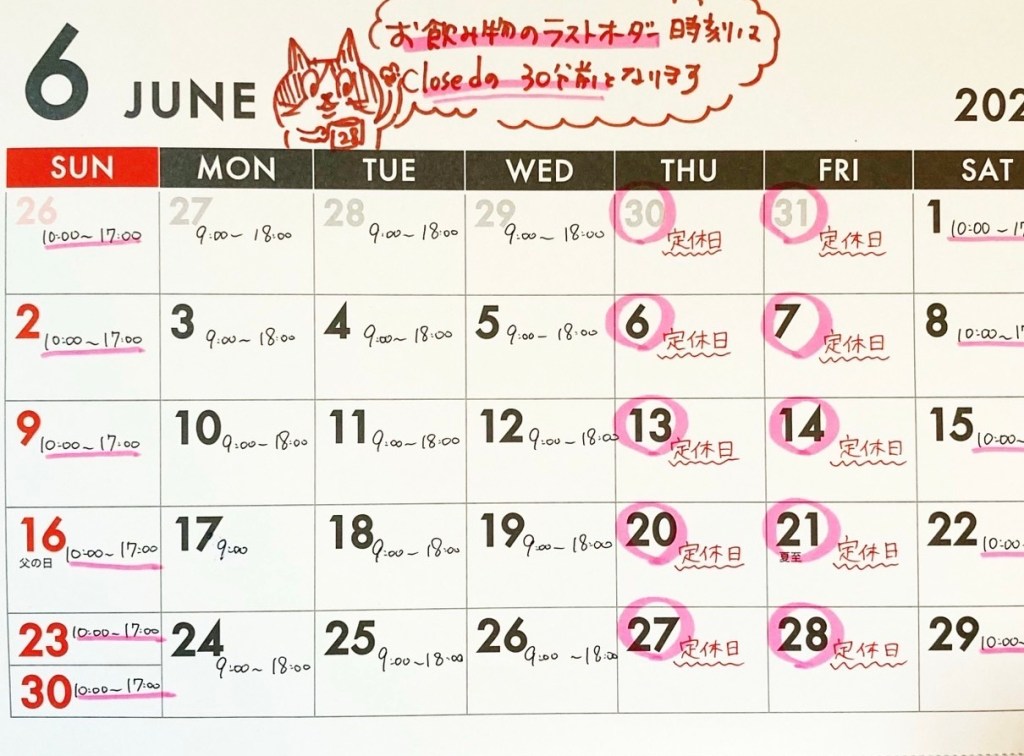 6 JUNE
お飲み物のラストオーダー時刻は
Closedの 30分前となります
128
202
SUN MON TUE WED THU FRI SAT
26 10:00~17:00
27 9:00~18:00
28 9:00~18:00
29 9:00~18:00
30 定休日
31 定休日
1 10:00~17
2 10:00~17:00
3 9:00~18:00
4 9:00~18:00
5 9:00~18:00
6 定休日
7 定休日
8 10:00~17
9 10:00~17:00
10 9:00~18:00
11 9:00~18:00
12 9:00~18:00
13 定休日
14 定休日
15 10:00~
16 10:00~17:00
父の日
17 9:00
18 9:00~18:00
19 9:00~18:00
20 定休日
21 定休日
夏至
22 10:00~
23 10:00~17:00
24 9:00~18:00
25 9:00~18:00
26 9:00 ~18:00
27 定休日
28 定休日
29 10:00~
30 10:00~17:00